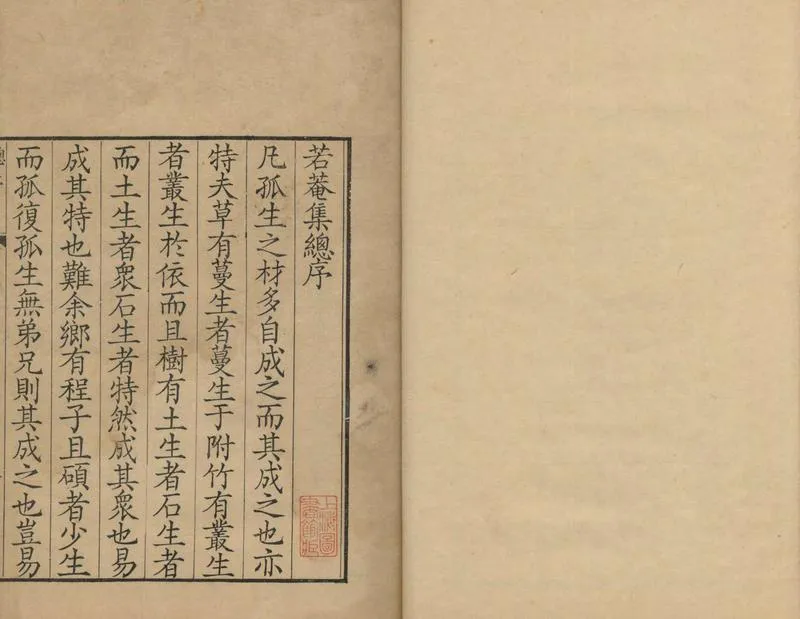 若菴集總序
凡孤生之材多自成之而其成之也亦
特夫草有蔓生者蔓生于附竹有叢生
者叢生於依而且樹有土生者石生者
而土生者衆石生者特然成其衆也易
成其特也難余鄉有程子且碩者少生
而孤復孤生無弟兄則其成之也豈易
上海圖
書館藏